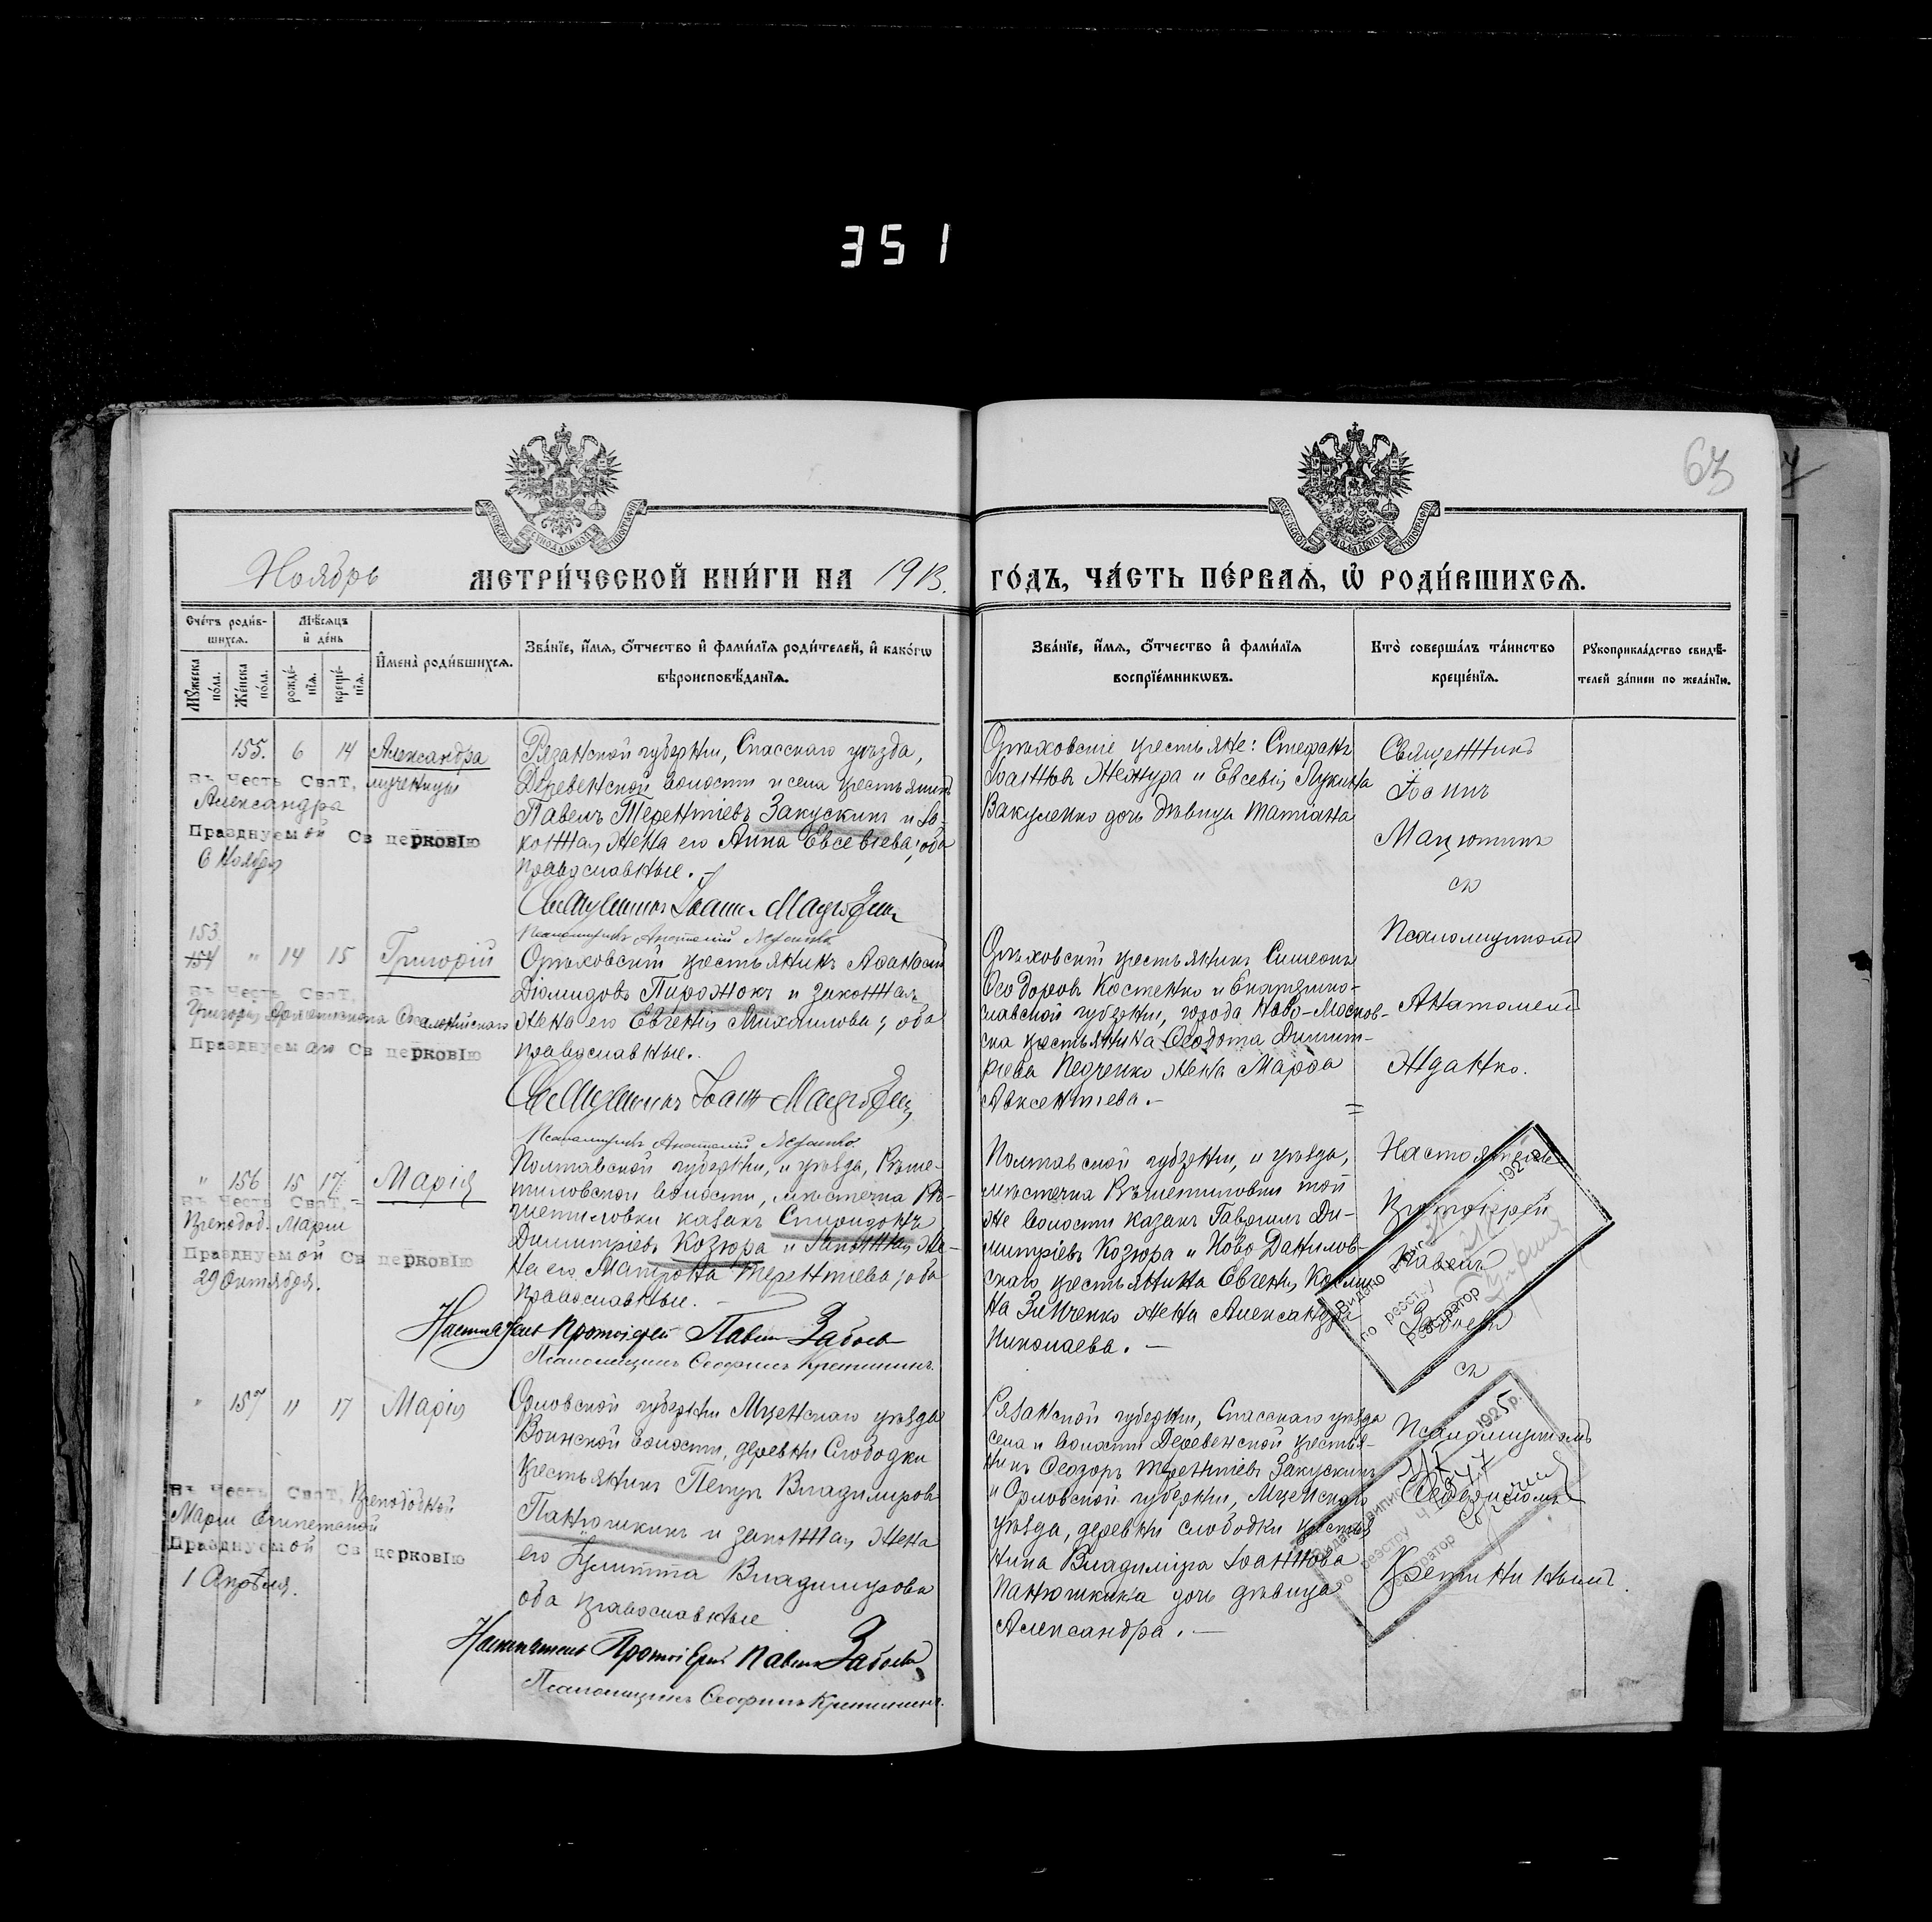 351
63
Ноябрь
МЕТРИ́ЧЕСКОЙ КНИ́ГИ НА 1913.
ГО́ДЪ, ЧА́СТЬ ПЕ́РВАѦ, Ѡ҆ РОДИ́ВШИХСѦ.
Сче́тъ роди́в-
шихсѧ.
Мѣ́сѧцъ
и҆ де́нь
Мꙋ́жеска
по́ла.
Же́нска
по́ла.
рожде́-
нїѧ.
креще́-
нїѧ.
И҆мена̀ роди́вшихсѧ.
Зва́нїе, и҆́мѧ, ѻ҆́тчество и҆ фами́лїѧ роди́телей, и҆ како́гѡ
вѣроисповѣ́данїѧ.
Зва́нїе, и҆́мѧ, ѻ҆́тчество и҆ фами́лїѧ
воспрїе́мникѡвъ.
Кто̀ соверша́лъ та́инство
креще́нїѧ.
Рꙋкоприкла́дство свидѣ́-
телей за́писи по жела́нїю.
155. 6 14 Александра
Въ Честь Свят, мученицы
Александра
Празднуемой Св церковІю
6 Ноября
Рязанской губерніи, Спасскаго уѣзда,
Деревенской волости и села крестьянинъ
Павелъ Терентіевъ Закускинъ и за-
конная жена его Анна Евсевіева; оба
православные.
Священникъ Іоаннъ Мацютинъ
Псаломщикъ Анатолій
Орѣховскіе крестьяне: Стефанъ
Іоанновъ Женжура и Евсевія Лукина
Вакуленко дочь дѣвица Татіана
Священникъ
Іоаннъ
Мацютинъ
съ
Псаломщикомъ
Анатоліемъ
Жданко.
153
154 " 14 15 Григорій
Въ Честь Свят,
Григорія Архіепископа Омелійскаго
Празднуемаго Св церковІю
Орѣховскій крестьянинъ Аѳанасій
Діомидовъ Пирожокъ и законная
жена его Евгенія Михаилова; оба
православные.
Священникъ Іоаннъ Мацютинъ
Псаломщикъ Анатолій
Орѣховскій крестьянинъ Симеонъ
Ѳеодоровъ Костенко и Екатерино-
славской губерніи, города Ново-Москов-
ска крестьянина Ѳеодота Димит-
ріева Педченко жена Марѳа
Авксентіева.
" 156 15 17 Марія
Въ Честь Свят,
Преподоб. Маріи
Празднуемой Св церковІю
29 Октября.
Полтавской губерніи, и уѣзда, Рѣше-
тиловской волости, мѣстечка Рѣ-
шетиловки казакъ Спиридонъ
Димитріевъ Козюра и законная же-
на его Матрона Терентіева; оба
православные.
Настоятель Протоіерей Павелъ Забоевъ
Псаломщикъ Ѳеофилъ Кретининъ.
Полтавской губерніи, и уѣзда,
мѣстечка Рѣшетиловки той
же волости казакъ Гавріилъ Ди-
митріевъ Козюра и Ново Данилов-
скаго крестьянина Евгенія Косми-
на Зинченко жена Александра
Николаева.
Настоятель
Протоіерей
Павелъ
Забоевъ
съ
Псаломщикомъ
Ѳеофиломъ
Кретининымъ.
192 р.
Видано випис
по реєстру
Реєстратор
" 157 " 17 Марія
Въ Честь Свят, Преподобной
Маріи Египетской
Празднуемой Св церковІю
1 Апрѣля.
Орловской губерніи Мценскаго уѣзда
Воинской волости, деревни Слободки
крестьянинъ Петръ Владиміровъ
Панюшкинъ и законная жена
его Іулитта Владимірова
оба православные
Настоятель Протоіерей Павелъ Забоевъ
Псаломщикъ Ѳеофилъ Кретининъ.
Рязанской губерніи, Спасскаго уѣзда
села и волости Деревенской крестья-
нинъ Ѳеодоръ Терентіевъ Закускинъ
и Орловской губерніи, Мценскаго
уѣзда, деревни слободки крестья-
нина Владиміра Іоаннова
Панюшкина дочь дѣвица
Александра.
1925 р.
Видано випис
по реєстру Ч.
Реєстратор